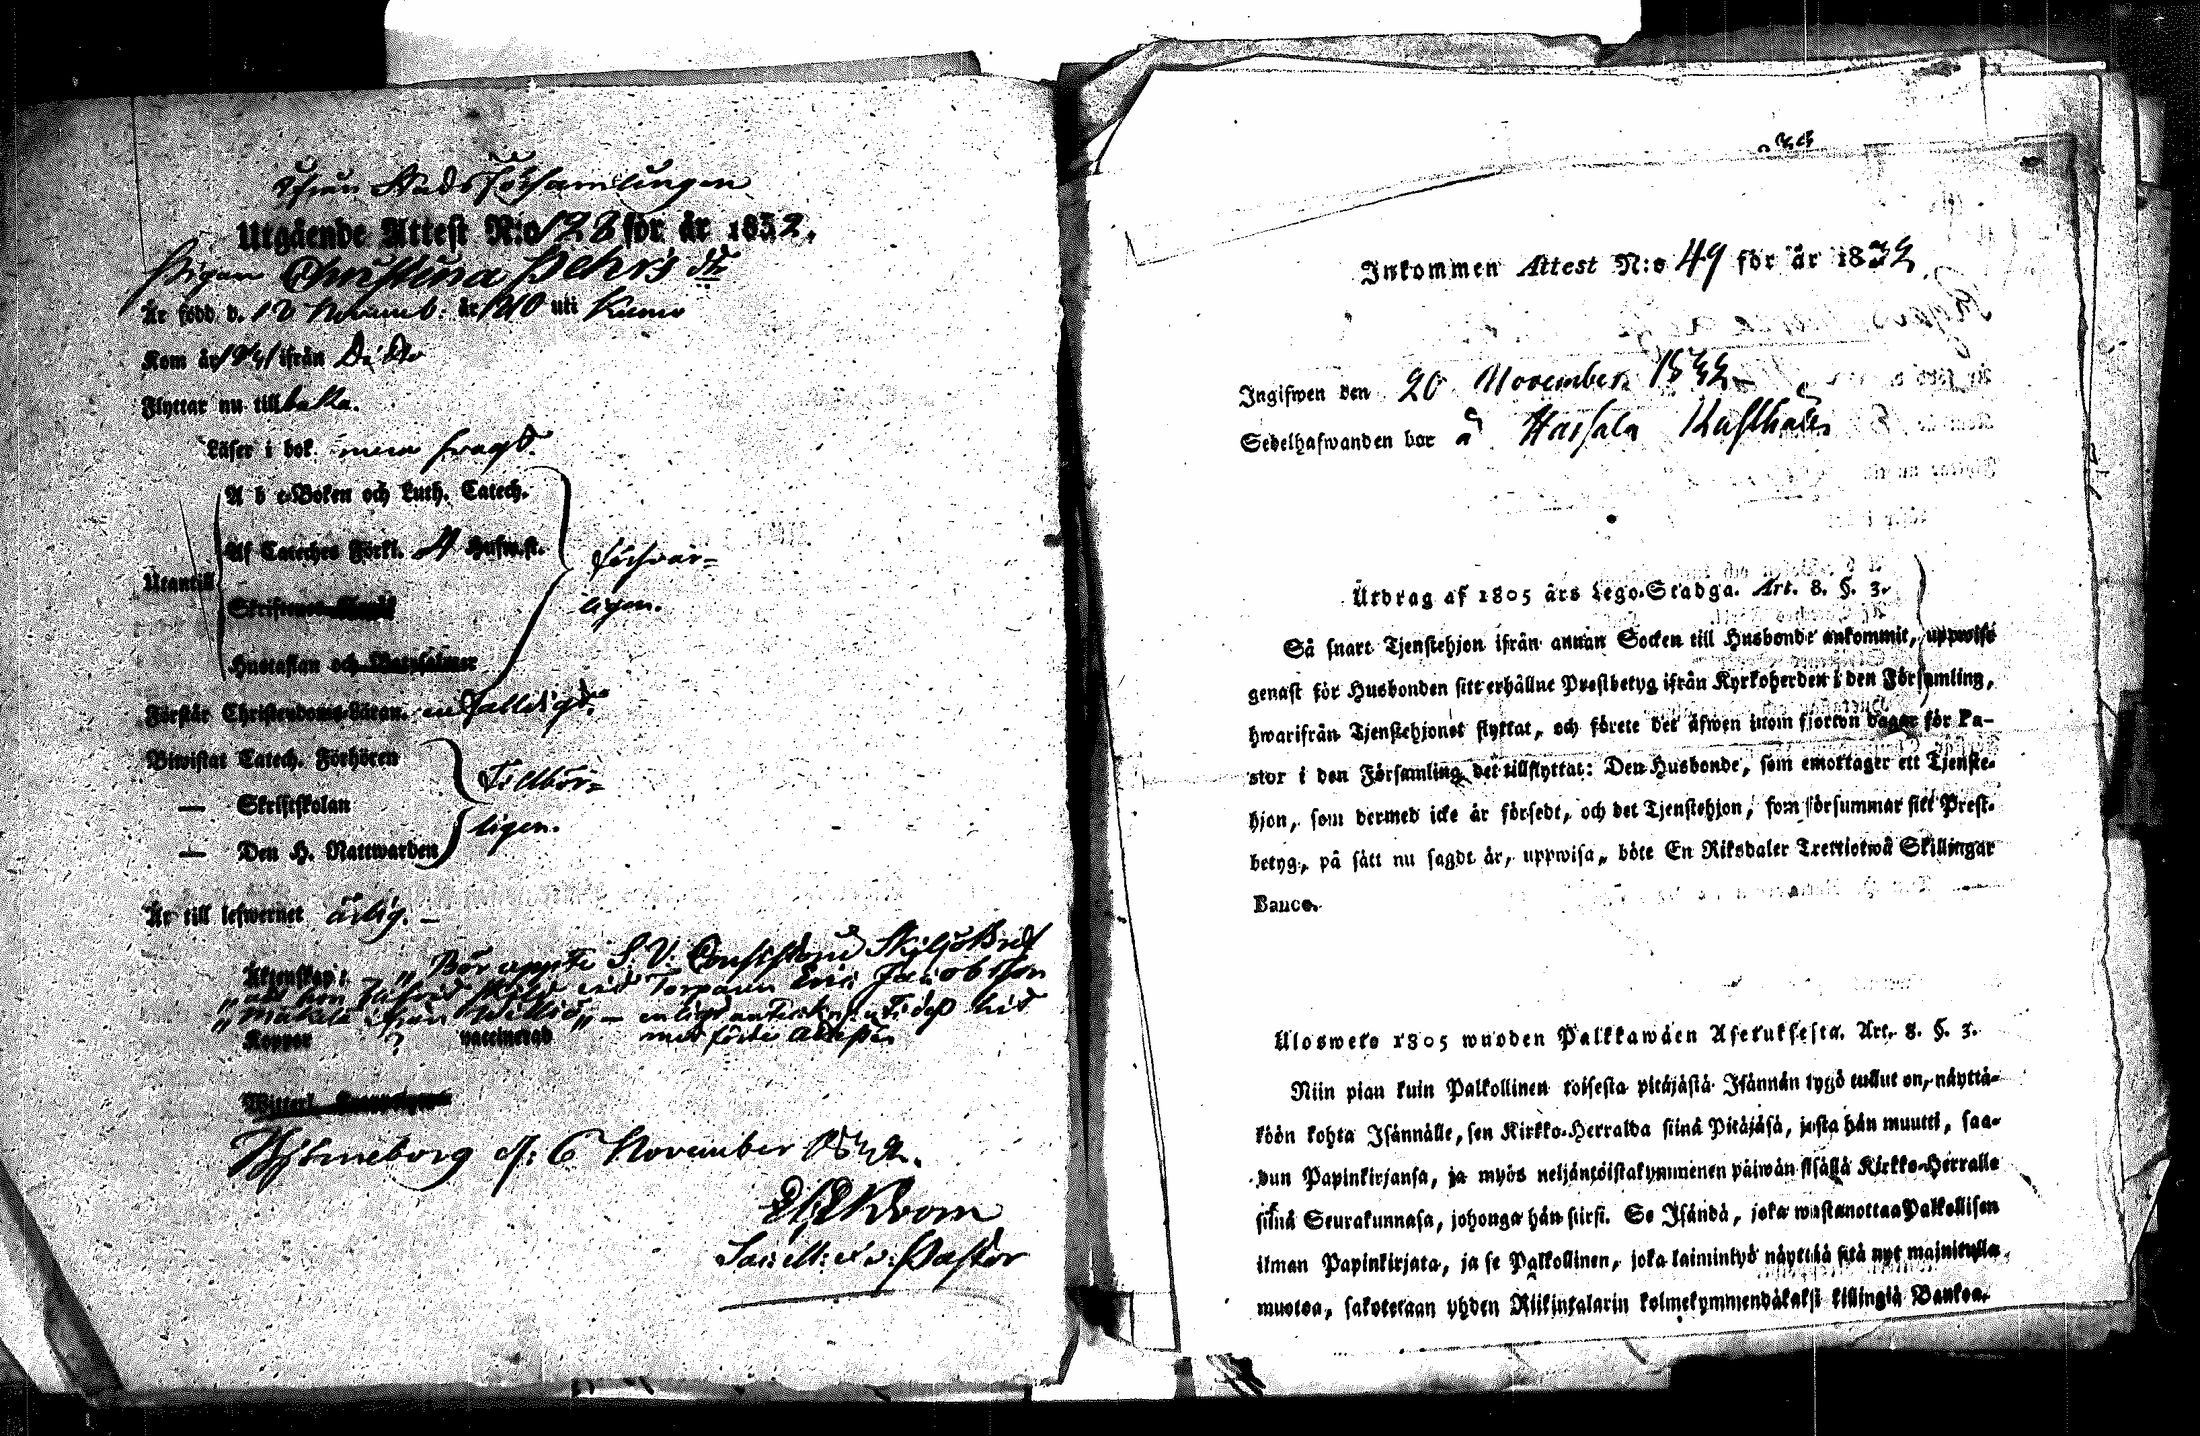 ifrån Stads Församlingen
Utgående Attest N:o 128 för år 1832.
Pigan Christina Pehrs dr
Är född d. 12 Novemb: år 1810 uti Kumo
Kom år 1831 ifrån Dito
Flyttar nu tillbaka.
Läser i bok
A b c-Boken och Luth. Catech.
Af Cateches Förkl. 4 Hufwst.
Utantill
försvar-
ligen.
Skriftenes
Hustaflan och
Förstår Christendoms-Läran. enfalldigt.
Biwistat Catech. Förhören
— Skriftskolan
— Den H. Nattwarden
Tillbör-
ligen.
Är till lefwernet ärlig. —
Äktenskap: — „Bör uppte S. V. Consistorii Skiljobref
„att hon blifvit skild vid Torparen Eric Jacobsson
— enligt anteckn. uti dess hit
Koppor ? vaccinerad medförde Attest.
Witterl.
Björneborg d: 6 November 1832.
Pastor
Inkommen Attest N:o 49 för år 1832,
Ingifwen den 20 November 1832
Sedelhafwanden bor å
Utdrag af 1805 års Lego-Stadga. Art. 8. §. 3.
Så snart Tjenstehjon ifrån annan Socken till Husbonde ankommit, uppwise
genast för Husbonden sitt erhållne Prestbetyg ifrån Kyrkoherden i den Församling,
hwarifrån Tjenstehjonet flyttat, och förete det äfwen inom fjorton dagar för Pa-
stor i den Församling det tillflyttat: Den Husbonde, som emottager ett Tjenste-
hjon, som dermed icke är försedt, och det Tjenstehjon, som försummar sitt Prest-
betyg, på sätt nu sagdt är, uppwisa, böte En Riksdaler Trettiotwå Skillingar
Banco.
Ulosweto 1805 wuoden Palkkawäen Asetuksesta. Art. 8. §. 3.
Niin pian kuin Palkollinen toisesta pitäjästä Isännän tygö tullut on, näyttä-
köön kohta Isännälle, sen Kirkko-Herralda siinä Pitäjäsä, josta hän muutti, saa-
dun Papinkirjansa, ja myös neljäntöistakymmenen päiwän sisällä Kirkko-Herralle
siinä Seurakunnasa, johonga hän siirsi. Se Isändä, joka wastanottaa Palkollisen
ilman Papinkirjata, ja se Palkollinen, joka laiminlyö näyttää sitä nyt mainitulla
muotoa, sakotetaan yhden Riikintalarin kolmekymmendäkaksi killingiä Bankoa.